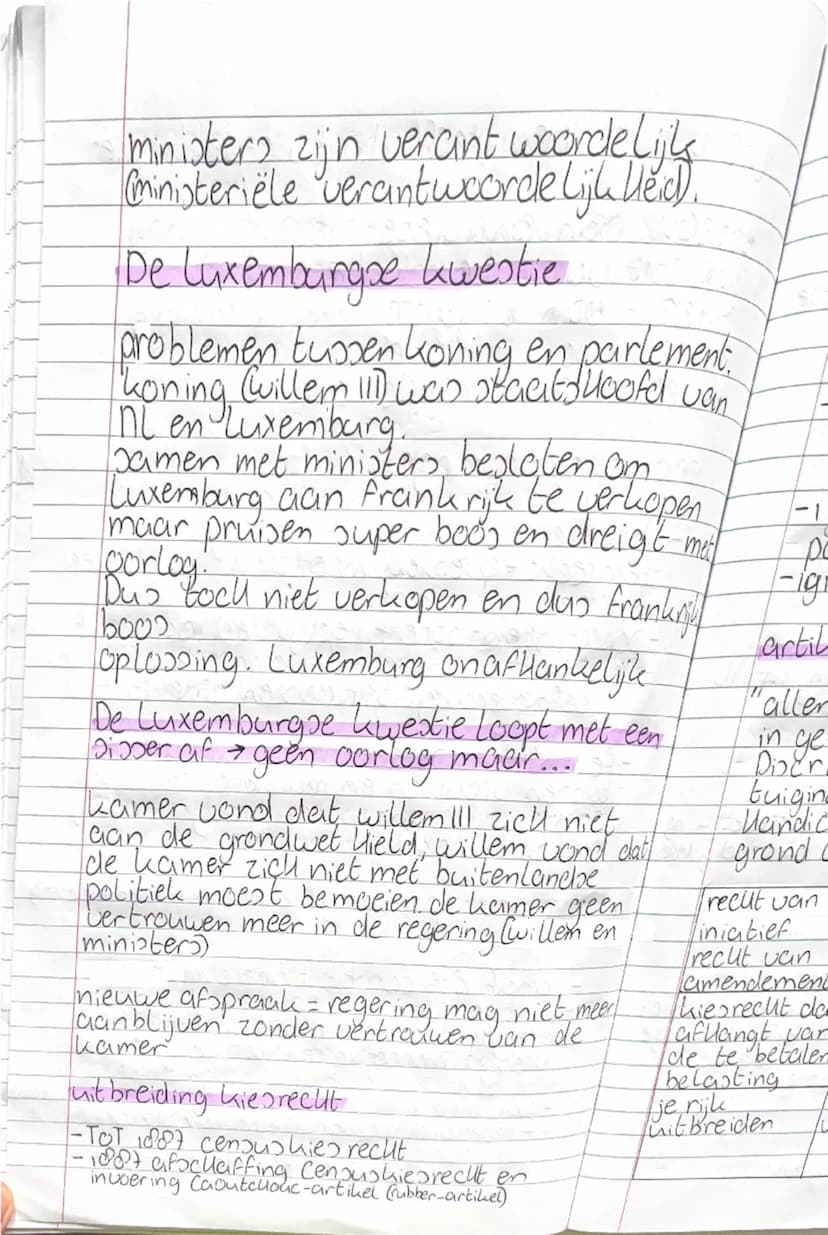 ministers zijn verantwoordelijk
(ministeriële verantwoordelijkheid).
De Luxemburgse kwestie
problemen tussen koning en parlement.
koning (willem III) was staatshoofd van
NL en Luxemburg.
samen met ministers besloten om
Luxemburg aan Frankrijk te verkopen
maar pruisen super boos en dreigt met
oorlog.
Dus toch niet verkopen en dus frankrijk
boos
oplossing. Luxemburg onafhankelijk
De Luxemburgse kwestie loopt met een
sisser af → geen oorlog maar...
kamer vond dat willem III zich niet
aan de grondwet hield, willem vond dat
de kamer zich niet met buitenlandse
politiek moest bemoeien. de kamer geen
vertrouwen meer in de regering (willem en
ministers)
nieuwe afspraak = regering mag niet meer
aanblijven zonder vertrouwen van de
kamer
uitbreiding kiesrecht
- TOT 1887 censuskiesrecht
- 1887 afschaffing censuskiesrecht en
invoering Caoutchouc-artikel (rubber-artikel)
-i
-igr
artik
"aller
in ge
Discr
tuigin
Handic
grond
recht van
iniatief
recht van
amendement
kiesrecht da
afhangt van
de te betalen
belasting
je rijk
uitbreiden